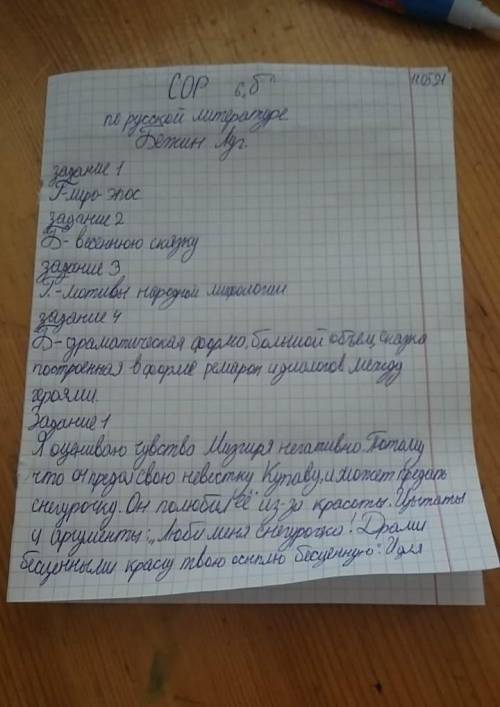 СОР 6 „Б" 11.05.21
по русской литературе
Бежин Луг.
задание 1
Г-лиро-эпос
задание 2
Б- весеннюю сказку
задание 3
Г.-мотивы народной мифологии
задание 4
Б-драматическая форма, большой объем, сказка
построенная в форме ремарок и диалогов между
героями.
Задание 1
Я оцениваю чувство Мизгиря негативно. Потому
что он предал свою невестку Купаву, и может предать
снегурочку. Он полюбил её из-за красоты. Цытаты
и аргументы: „Люби меня снегурочка! Драми
бесценными красу твою осыплю бесценную". И для